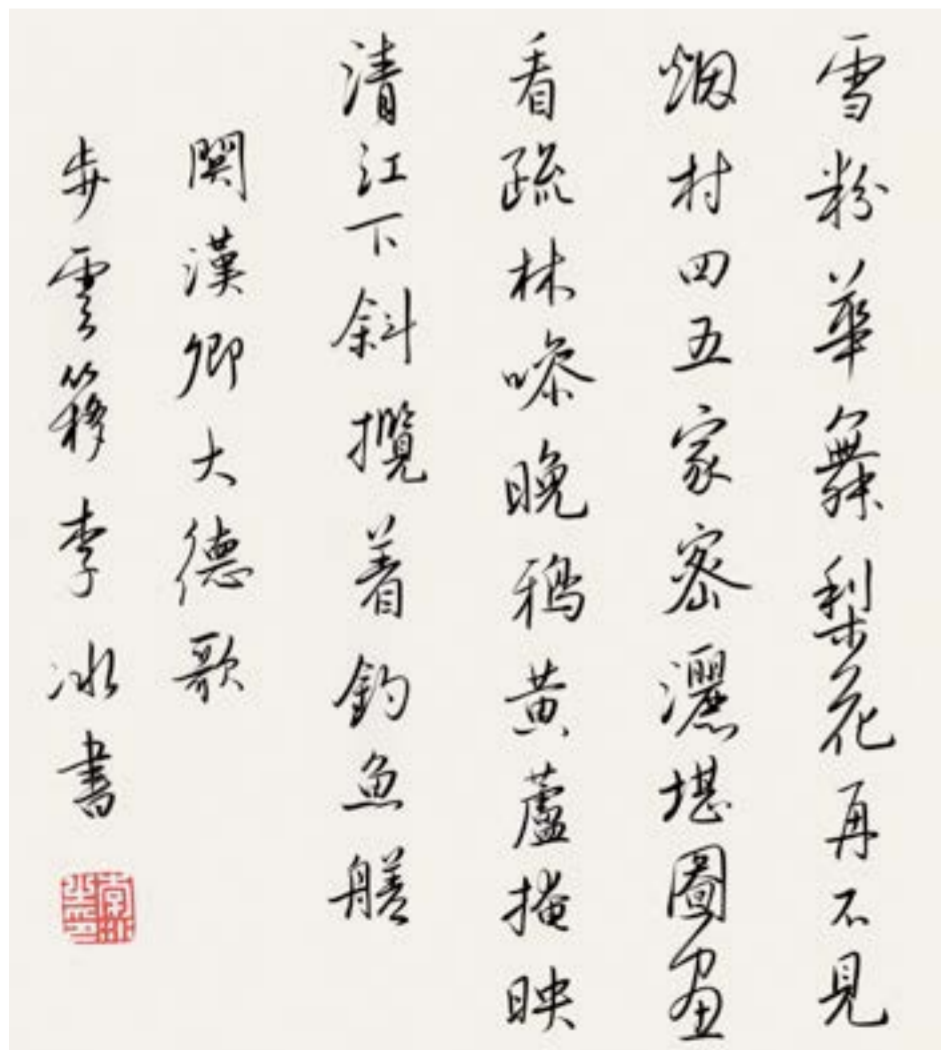 雪粉華舞梨花再不見
烟村四五家密灑堪圖畫
看疏林噪晚鴉黃蘆掩映
清江下斜攬着釣魚艖
關漢卿大德歌
步雲簃李冰書